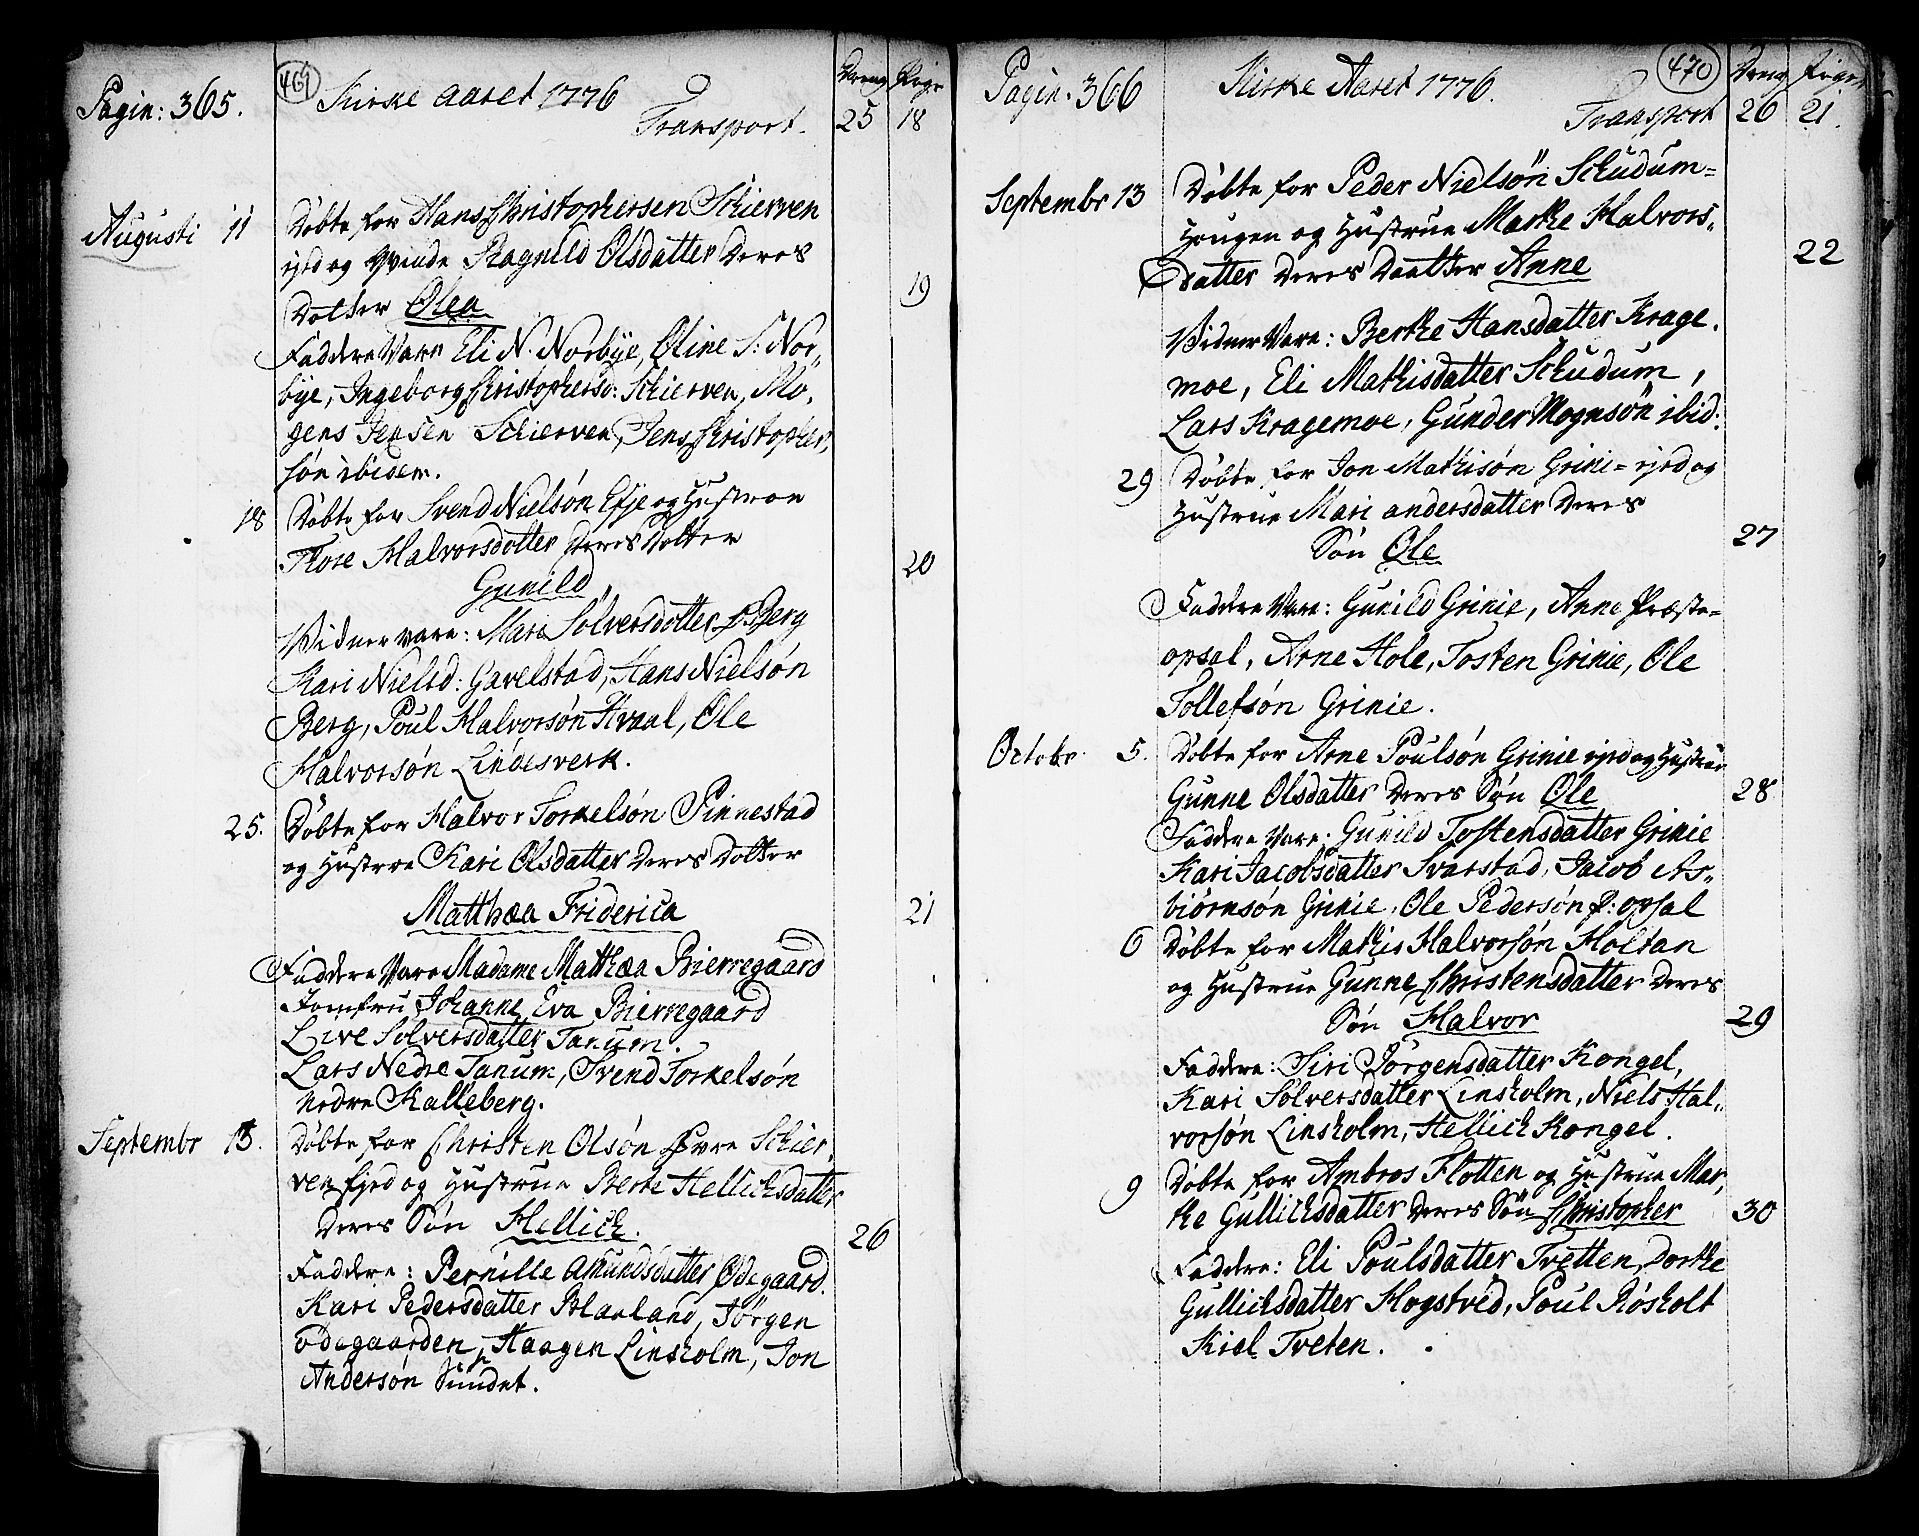 Pagin: 365.
469
Kirke Aaret 1776
Dreng Pige
Transport. 25 18
Augusti 11 Döbte for Hans Christophersen Schierven
ejed og Qvinde Ragnild Olsdatter Deres
Dotter Olea 19
Faddere Vare Eli N. Norbye, Oline S: Nor-
bye, Ingeborg Christophersd: Schierven, Mo-
gens Jensen Schierven, Jens Christopher-
søn ibidem.
18 Döbte for Svend Nielsøn Efje og Hustroe
Tore Halvorsdotter Deres Dotter
Gunild 20
Widner vare: Mari Sølversdotter Berg
Kari Nielsd: Gavelstad, Hans Nielsøn
Berg, Poul Halvorsøn Hvaal, Ole
Halvorsøn Lindesverk.
25. Döbte for Halvor Torkelsøn Pinnestad
og Hustroe Kari Olsdatter Deres Dotter
Matthæa Friderica 21
Faddere Vare Madame Matthæa Bierregaard
Jomfru Johanne Eva Bierregaard
Live Solversdatter Tanum.
Lars Nedre Tanum, Svend Torkelsøn
nedre Kalleberg.
Septembr 13. Döbte for Christen Olsøn Øvre Schier-
ven fjrd og Hustrue Berte Hellichsdatter
Deres Søn Hellich. 26
Faddere: Pernille Amundsdatter Ødegaard.
Kari Pedersdatter Blaaland, Jørgen
Ødegaarden, Haagen Linsholm, Jon
Andersøn Sundet.
Pagin. 366
470
Kirke Aaret 1776.
Dreng Piger
Transport 26 21.
Septembr 13 Döbte for Peder Nielsøn Schudum-
Hougen og Hustrue Marthe Halvors-
Datter Deres Daatter Anne 22
Widner Vare: Berthe Hansdatter Krage-
moe, Eli Mathisdatter Schudum,
Lars Kragemoe, Gunder Mognsøn ibid:
29 Döbte for Jon Mathisøn Grinie ejed og
Hustrue Mari Andersdatter Deres
Søn Ole 27
Faddere Vare: Gunild Grinie, Anne Præste-
opsal, Arne Hole, Tosten Grinie, Ole
Tollefsøn Grinie.
Octobr. 5. Döbte for Arne Poulsøn Grinie ejed og Hustrue
Gunne Olsdatter Deres Søn Ole 28
Faddere Vare: Gunild Tostensdatter Grinie
Kari Jacobsdatter Svarstad, Jacob As-
biørnsøn Grinie, Ole Pedersøn P: opsal
6 Döbte for Mathis Halvorsøn Holtan
og Hustrue Gunne Christensdatter Deres
Søn Halvor 29
Faddere: Siri Jørgensdatter Kongel,
Kari Sølversdatter Linsholm, Niels Hal-
vorsøn Linsholm, Hellich Kongel.
9 Döbte for Ambros Flotten og Hustrue Mar-
the Gullichsdatter Deres Søn Christopher 30
Faddere: Eli Poulsdatter Tvetten, Dorthe
Gullichsdatter Hogstved, Poul Røsholt
Kiel Tveten.